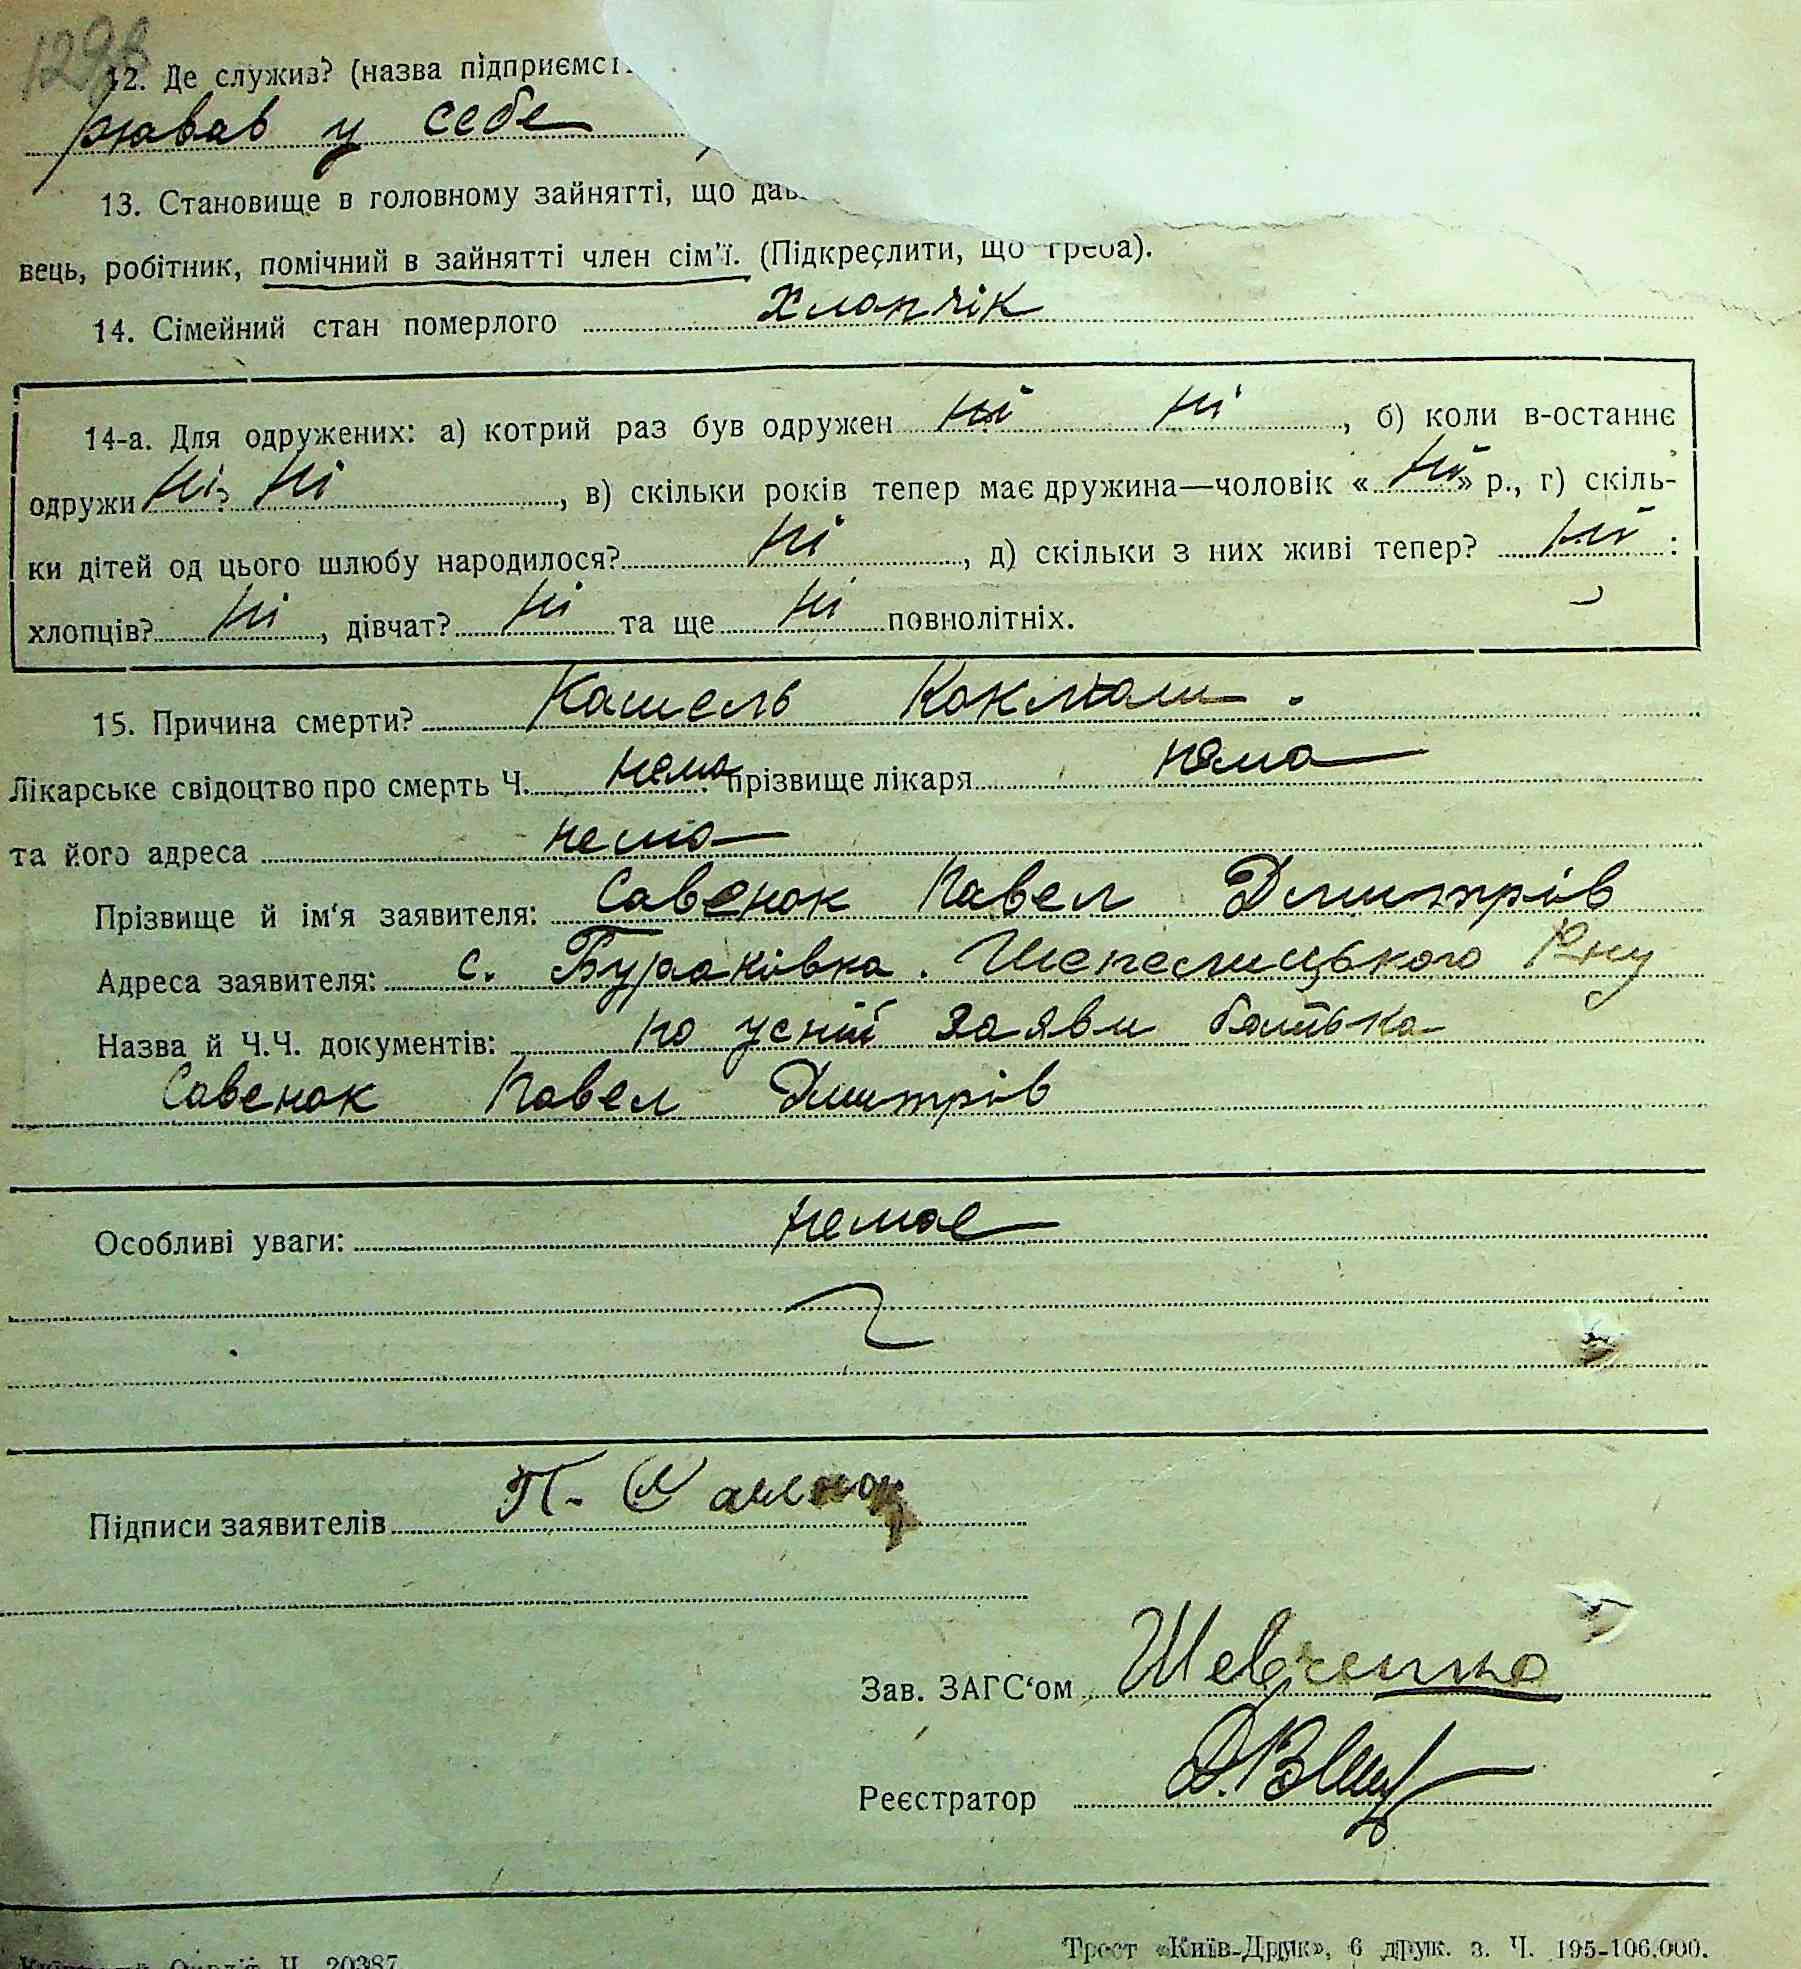 12. Де служив? (назва підприємст
рював у себе
13. Становище в головному зайнятті, що дав
вець, робітник, помічний в зайнятті член сім'ї. (Підкреслити, що треба).
14. Сімейний стан померлого хлопчік
14-а. Для одружених: а) котрий раз був одружен ні ні, б) коли в-останнє
одружи ні ні, в) скільки років тепер має дружина—чоловік « ні » р., г) скіль-
ки дітей од цього шлюбу народилося? ні, д) скільки з них живі тепер? ні :
хлопців? ні, дівчат? ні та ще ні повнолітніх.
15. Причина смерти? Кашель Коклюш.
Лікарське свідоцтво про смерть Ч. нема прізвище лікаря нема
та його адреса нема
Прізвище й ім'я заявителя: Савенок Павел Дмитрів
Адреса заявителя: с. Бураківка. Шепелицького Р-ну
Назва й Ч.Ч. документів: по усній заяви батька
Савенок Павел Дмитрів
Особливі уваги: немає
Підписи заявителів П. Савенок
Зав. ЗАГС'ом Шевченко
Реєстратор
Ч. 20387
Трест «Київ-Друк», 6 друк. з. Ч. 195-106.000.